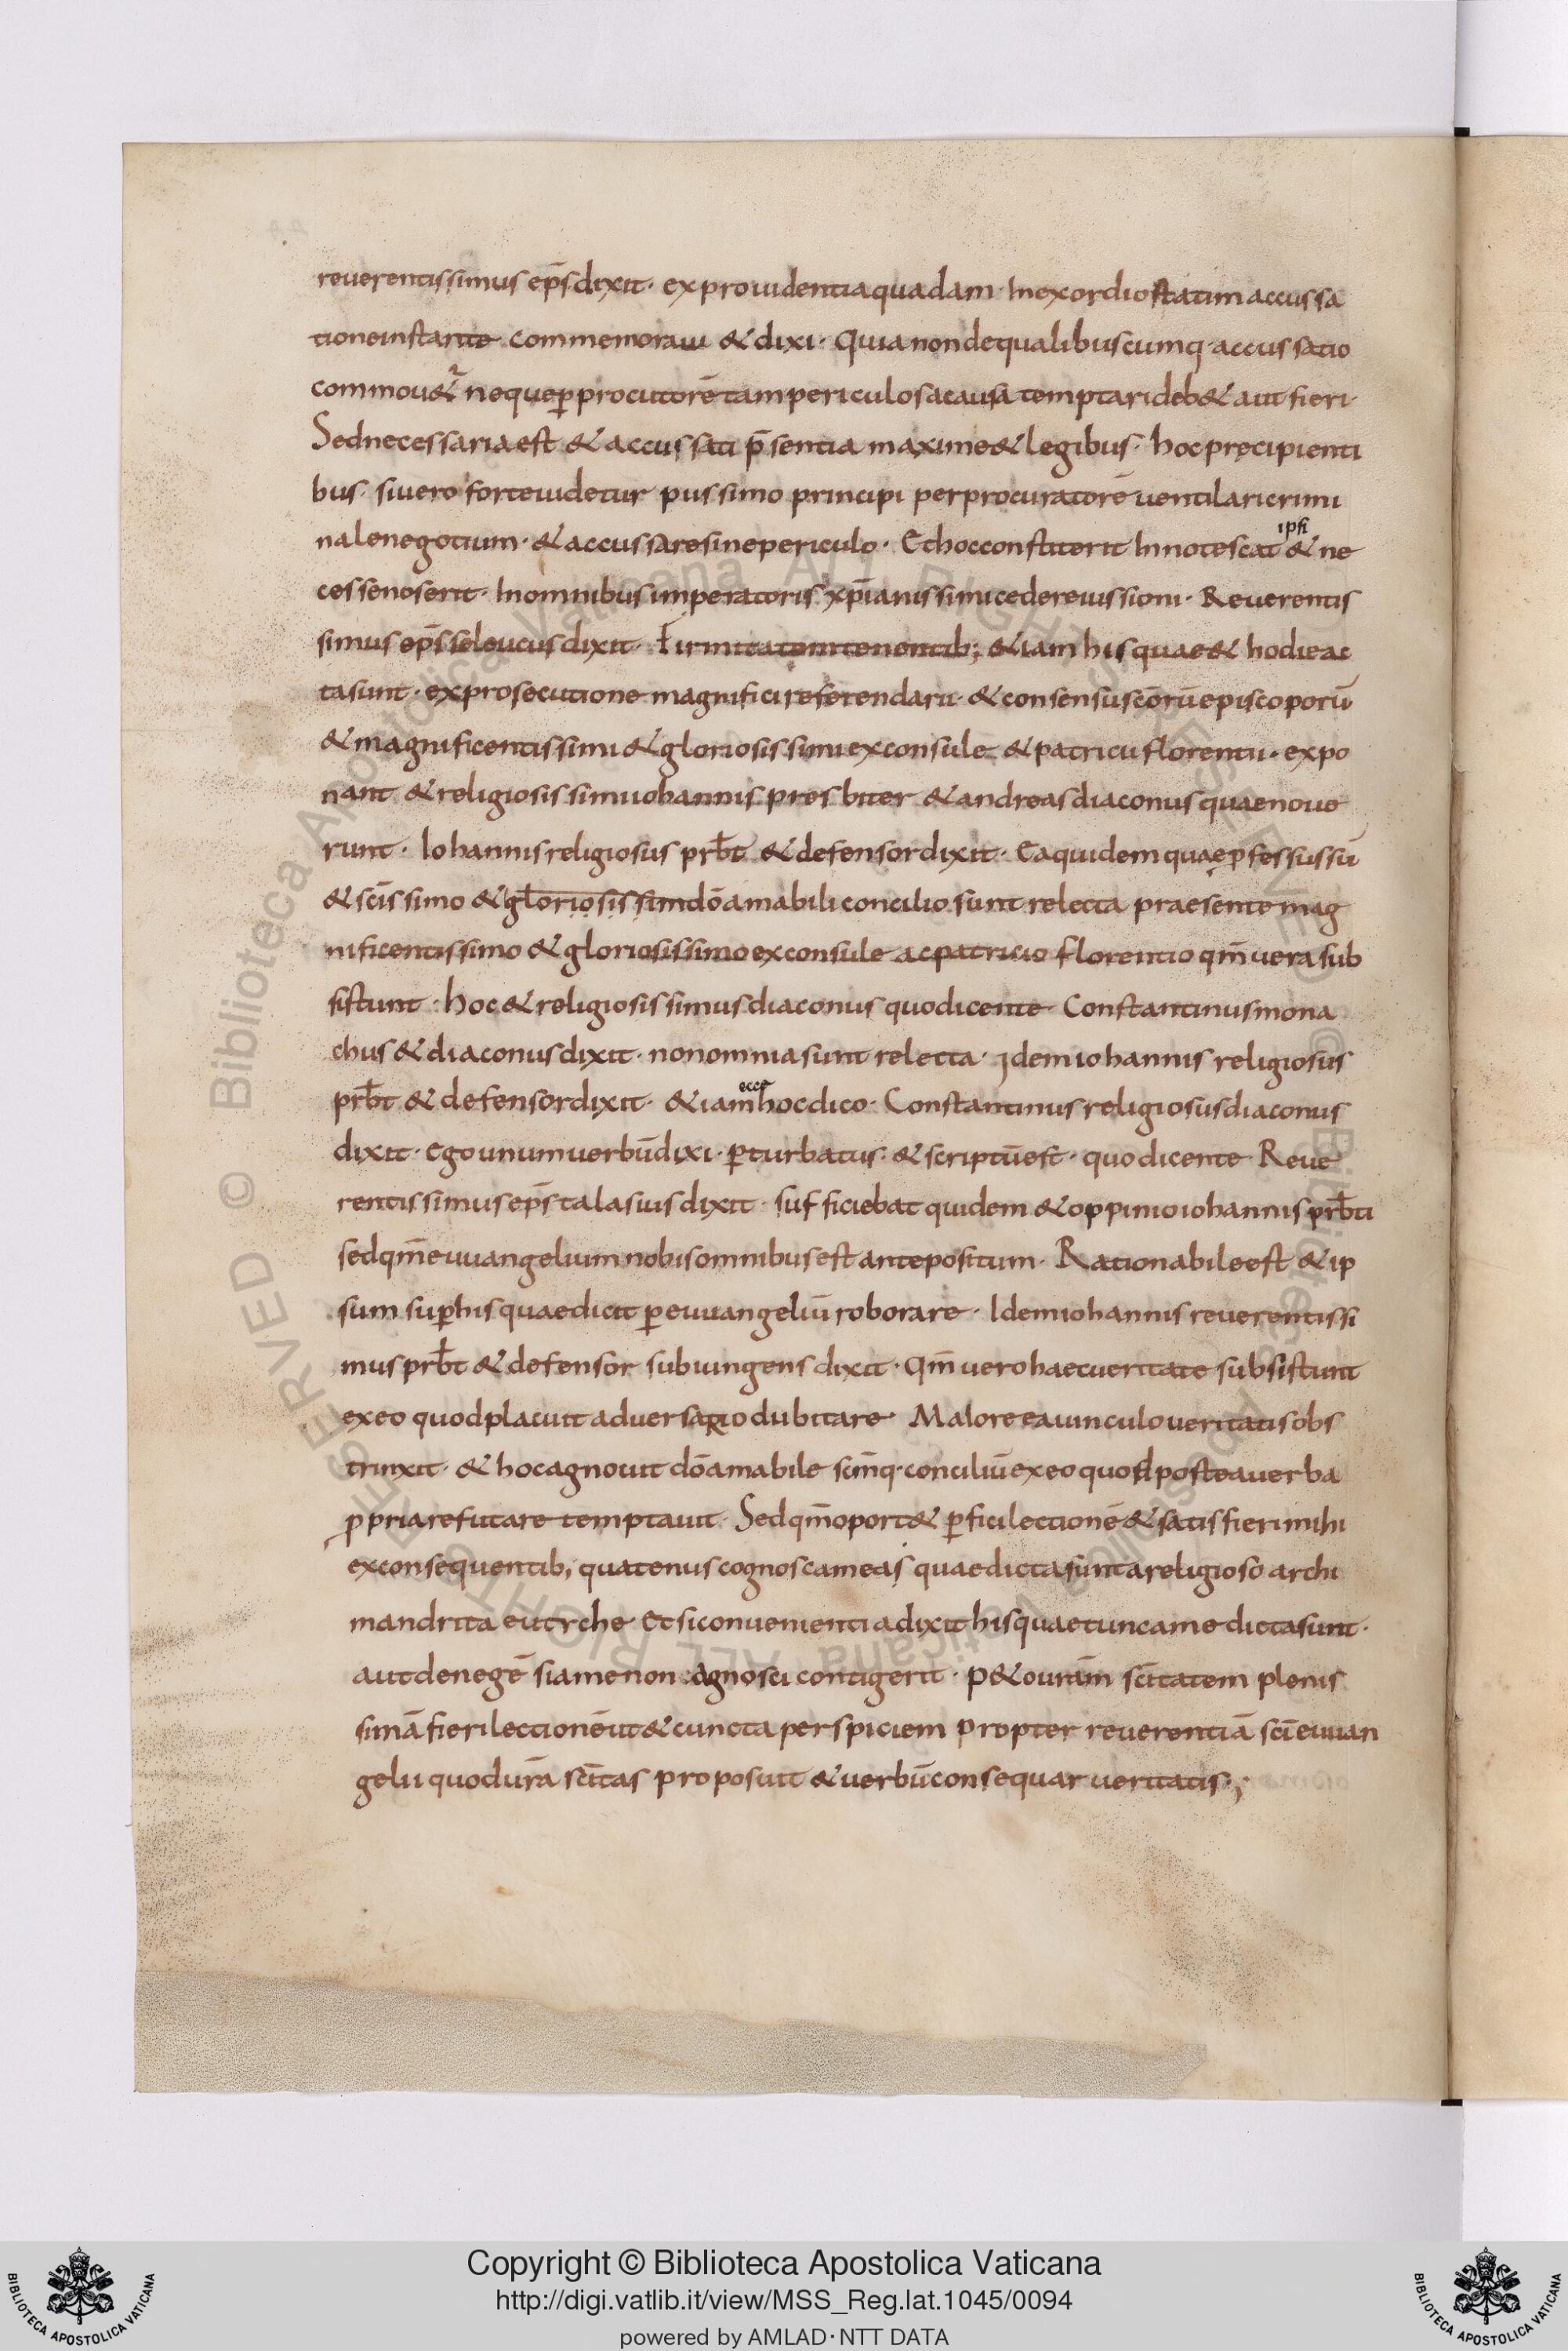 reuerentissimus ep̄s dixit · ex prouidentia quadam · In exordio statim accussa
tione instante commemoraui & dixi · Quia non de qualibuscumq · accussatio
commou&ur neque ꝑ procutorē tam periculosa causa temptari deb& aut fieri ·
Sed necessaria est & accussati p̄sentia maxime & legibus · hoc precipienti
bus · si uero forte uidetur piissimo principi per procuratorē uentilari crimi
nale negotium · & accussare sine periculo · Et hoc constiterit Innotescat ipsi & ne
cesse nos erit · In omnibus imperatoris xp̄ianissimi cedere iussioni · Reuerentis
simus ep̄s seleucus dixit · Firmitatem tenentib; & iam his quae & hodie ac
ta sunt · ex prosecutione magnifici referendarii · & consensu sc̄orū episcoporū
& magnificentissimi & gloriosissimi exconsule & patricii florentii · expo
nant & religiosissimi iohannis presbiter & andreas diaconus quae noue
runt · Iohannis religiosus prb̄t & defensor dixit · Ea quidem quae ꝓfessus sū
& sc̄issimo & gloriosissim dō amabili concilio sunt relecta praesente mag
nificentissimo & gloriosissimo exconsule ac patricio florentio qm̄ uera sub
sistunt · hoc & religiosissimus diaconus quo dicente Constantinus mona
chus & diaconus dixit · non omnia sunt relecta · Idem iohannis religiosus
prb̄t & defensor dixit · & iam ecce hoc dico · Constantinus religiosus diaconus
dixit · ego unum uerbū dixi · ꝑturbatus · & scriptū est · quo dicente Reue
rentissimus ep̄s talasius dixit · sufficiebat quidem & oppinio iohannis prb̄ti
sed qm̄ euuangelium nobis omnibus est antepositum · Rationabile est & ip
sum suꝑ his quae dicit ꝑ euuangeliū roborare · Idem iohannis reuerentissi
mus prb̄t & defensor subiungens dixit · Qm̄ uero haec ueritate subsistunt
ex eo quod placuit aduersario dubitare · Maiore ea uinculo ueritatis obs
trinxit · & hoc agnouit dō amabile sc̄m̄q · conciliū ex eo quod postea uerba
ꝓpria refutare temptauit · Sed qm̄ oport& ꝑfici lectionē & satisfieri mihi
ex consequentib; quatenus cognoscam eas quae dicta sunt a religioso archi
mandrita eutyche Et si conuenienti adixit his quae tunc a me dicta sunt ·
aut denegē si a me non agnosci contigerit · P&o urām sc̄itatem plenis
simā fieri lectionē ut & cuncta perspiciem propter reuerentiā sc̄i euuan
gelii quod urā sc̄itas proposuit & uerbū consequar ueritatis ·;
Copyright © Biblioteca Apostolica Vaticana
http://digi.vatlib.it/view/MSS_Reg.lat.1045/0094
powered by AMLAD · NTT DATA